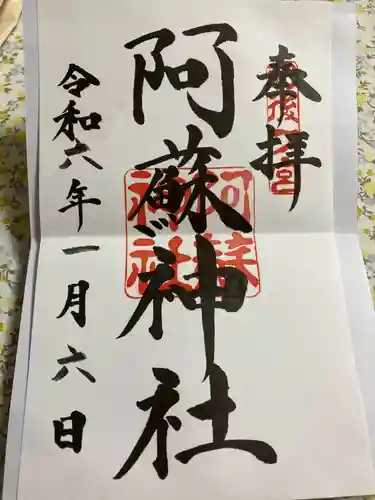 奉拝
肥後一宮
阿蘇神社
阿蘇神社
令和六年一月六日